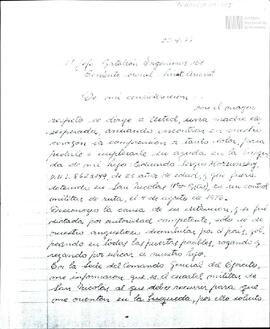 Al Jefe Batallón Ingenieros 101
Teniente coronel
De mi consideración:
Con el mayor
respeto se dirige a Usted, una madre de-
sesperada, ansiando encontrar en vuestro
corazón la comprensión a tanto dolor, para
pedirle e implorarle su ayuda en la búsque-
da de mi hijo: Eduardo Sergio
D.N.I. de 25 años de edad, que fuera
detenido en San Nicolás (Pcia Bs As), en un control
militar de ruta, el 4 de agosto de 1976.
Desconozco la causa de su detención, y si fue
dictada por autoridad competente, sólo sé de
nuestro angustioso deambular por el país, gol-
peando en todas las puertas posibles, rogando y
rezando por ubicar a nuestro hijo.
En la Sede del Comando General del Ejército,
me informaron que es el cuartel militar de
San Nicolás al que debo recurrir para que
me orienten en la búsqueda, por ello solicito